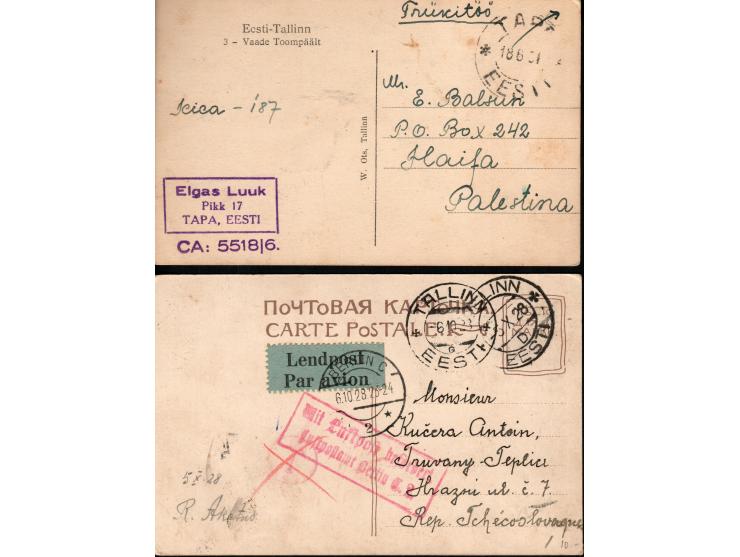 Eesti-Tallinn
3 – Vaade Toompäält
Trükitöö
18 6
EESTI
Mr.
E. Balsun
P.O. Box 242
Haifa
Palestina
W. Ots, Tallinn
Elgas Luuk
Pikk 17
TAPA, EESTI
CA: 5518|6.
ПОЧТОВАЯ
CARTE POSTALE
TALLINN
EESTI
INN
EESTI
Lendpost
Par avion
BERLIN C
6.10.28.23-24
2
Mit Luftpost befördert
Luftpostamt Berlin C. 2
Monsieur
Kučera Antoin,
Truvany-Teplici
Hrazni ul. č. 7.
Rep. Tchécoslovaque
5 X 28
R.
10-